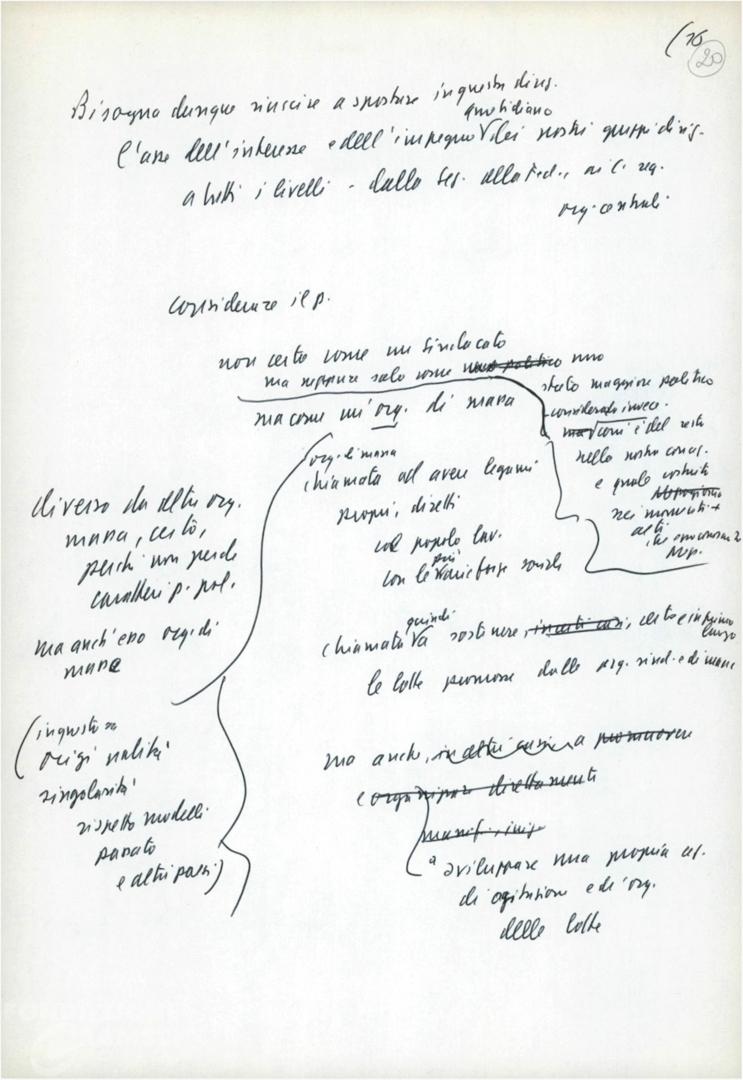 (76
20
Bisogna dunque riuscire a spostare in questa direz.
quotidiano
l'asse dell'interesse e dell'impegno dei nostri gruppi dirig.
a tutti i livelli - dalle sez. alle Fed., ai C. reg.
org. centrali
considerare il p.
non certo come un sindacato
ma neppure solo come uno politico uno
stato maggiore politico
ma come un'org. di massa
considerato invece
ma com'è del resto
nella nostra concez.
e quale costruito
nei momenti +
alti
org. di massa
chiamata ad avere legami
propri, diretti
col popolo lav.
più
con le varie forze sociali
diverso da altre org.
massa, certo,
perché non perde
caratteri p. pol.
ma anch'esso org. di
massa
(in questo sa
originalità
singolarità
rispetto modelli
passato
e altri paesi)
quindi
chiamata a sostenere, in certi casi, certo e in primo
luogo
le lotte promosse dalle org. sind. e di massa
ma anche, in altri casi, a promuovere
e organizzare direttamente
manif., iniz.
a sviluppare una propria az.
di agitazione e di org.
delle lotte